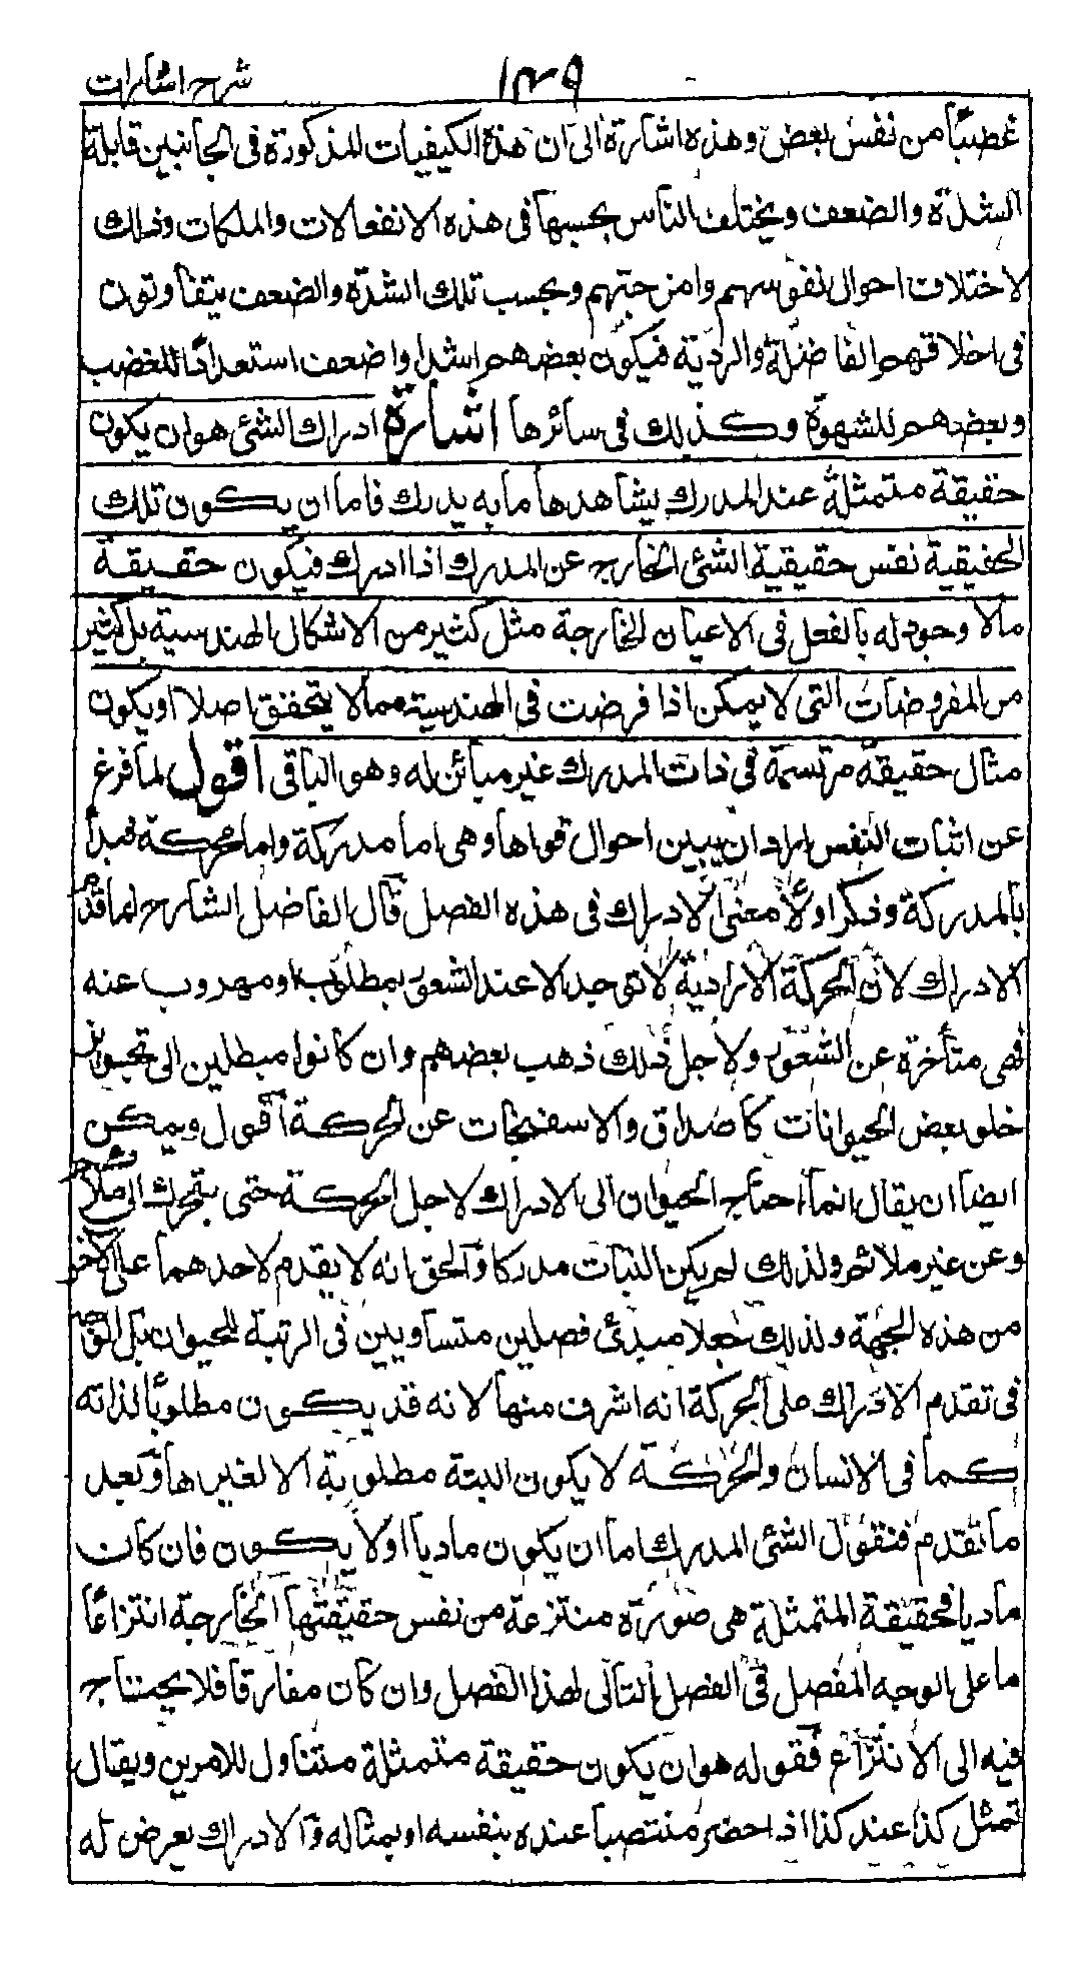 شرح اشارات
١٣٩
غصباً من نفس بعض وهذه اشارة الى ان هذه الكيفيات المذكورة فى الجانبين قابلة
الشدّة والضعف ويختلف الناس بحسبها فى هذه الانفعالات والملكات وذلك
لاختلاف احوال نفوسهم وامزجتهم وبحسب تلك الشدّة والضعف يتفاوتون
فى اخلاقهم الفاضلة والرديّة فيكون بعضهم اشد او اضعف استعدادًا للغضب
وبعضهم للشهوة وكذلك فى سائرها اشارة ادراك الشئ هو ان يكون
حقيقة متمثلة عند المدرك يشاهدها ما به يدرك فاما ان يكون تلك
الحقيقية نفس حقيقية الشئ الخارج عن المدرك اذا ادرك فيكون حقيقة
مالا وجود له بالفعل فى الاعيان الخارجة مثل كثير من الاشكال الهندسية بل كثير
من المفروضات التى لا يمكن اذا فرضت فى الهندسية مما لا يتحقق اصلا او يكون
مثال حقيقة مرتسمة فى ذات المدرك غير مبائن له وهو الباقى اقول لما فرغ
عن اثبات النفس اراد ان يبين احوال قواها وهى اما مدركة واما محركة فبدأ
بالمدركة وذكر اولاً معنى الادراك فى هذه الفصل قال الفاضل الشارح انما قدم
الادراك لان الحركة الارادية لا توجد الا عند الشعور بمطلوب او مهروب عنه
فهى متأخرة عن الشعور ولاجل ذلك ذهب بعضهم وان كانوا مبطلين الى تجويز
خلو بعض الحيوانات كاصداف والاسفنجات عن الحركة اقول ويمكن
ايضا ان يقال انما احتاج الحيوان الى الادراك لاجل الحركة حتى يتحرك الى ملائم
وعن غير ملائم ولذلك لم يكن النبات مدركا والحق انه لا يقدم لاحدهما على الآخر
من هذه الجهة ولذلك جعلا مبدئ فصلين متساويين فى الرتبة للحيوان بل الوجه
فى تقدم الادراك على الحركة انه اشرف منها لانه قد يكون مطلوباً لذاته
كما فى الانسان والحركة لا يكون البتة مطلوبة الا لغيرها وبعد
ما تقدم فنقول الشئ المدرك اما ان يكون ماديا اولا يكون فان كان
ماديا فحقيقة المتمثلة هى صورة منتزعة من نفس حقيقتها الخارجة انتزاعًا
ما على الوجه المفصل فى الفصل التالى لهذا الفصل وان كان مفارقا فلا يحتاج
فيه الى الانتزاع فقوله هو ان يكون حقيقة متمثلة متناول للامرين ويقال
تمثل كذا عند كذا اذ احضر منتصبا عنده بنفسه او بمثاله والادراك يعرض له